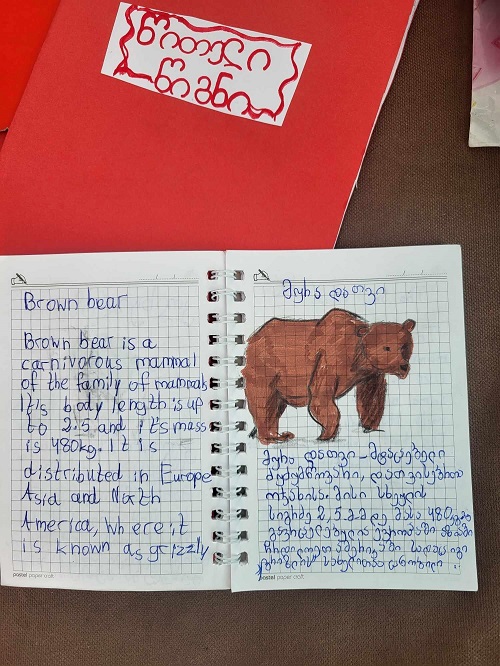 წითელი
წიგნი
Brown bear
Brown bear is a
carnivorous mammal
of the family of mammals
It's body length is up
to 2.5 and it's mass
is 480kg. It is
distributed in Europe
Asia and North
America, where it
is known as grizzly
postel paper craft
მურა დათვი
მურა დათვი – მტაცებელი
ძუძუმწოვარი, დათვისებრთა
ოჯახისა. მისი სხეულის
სიგრძე 2,5 მ-მდე მასა 480კგმდე
გავრცელებულია ევროპაში
ჩრდილოეთ ამერიკაში სადაც იგი
გრიზლის სახელითაა ცნობილი
postel paper craft